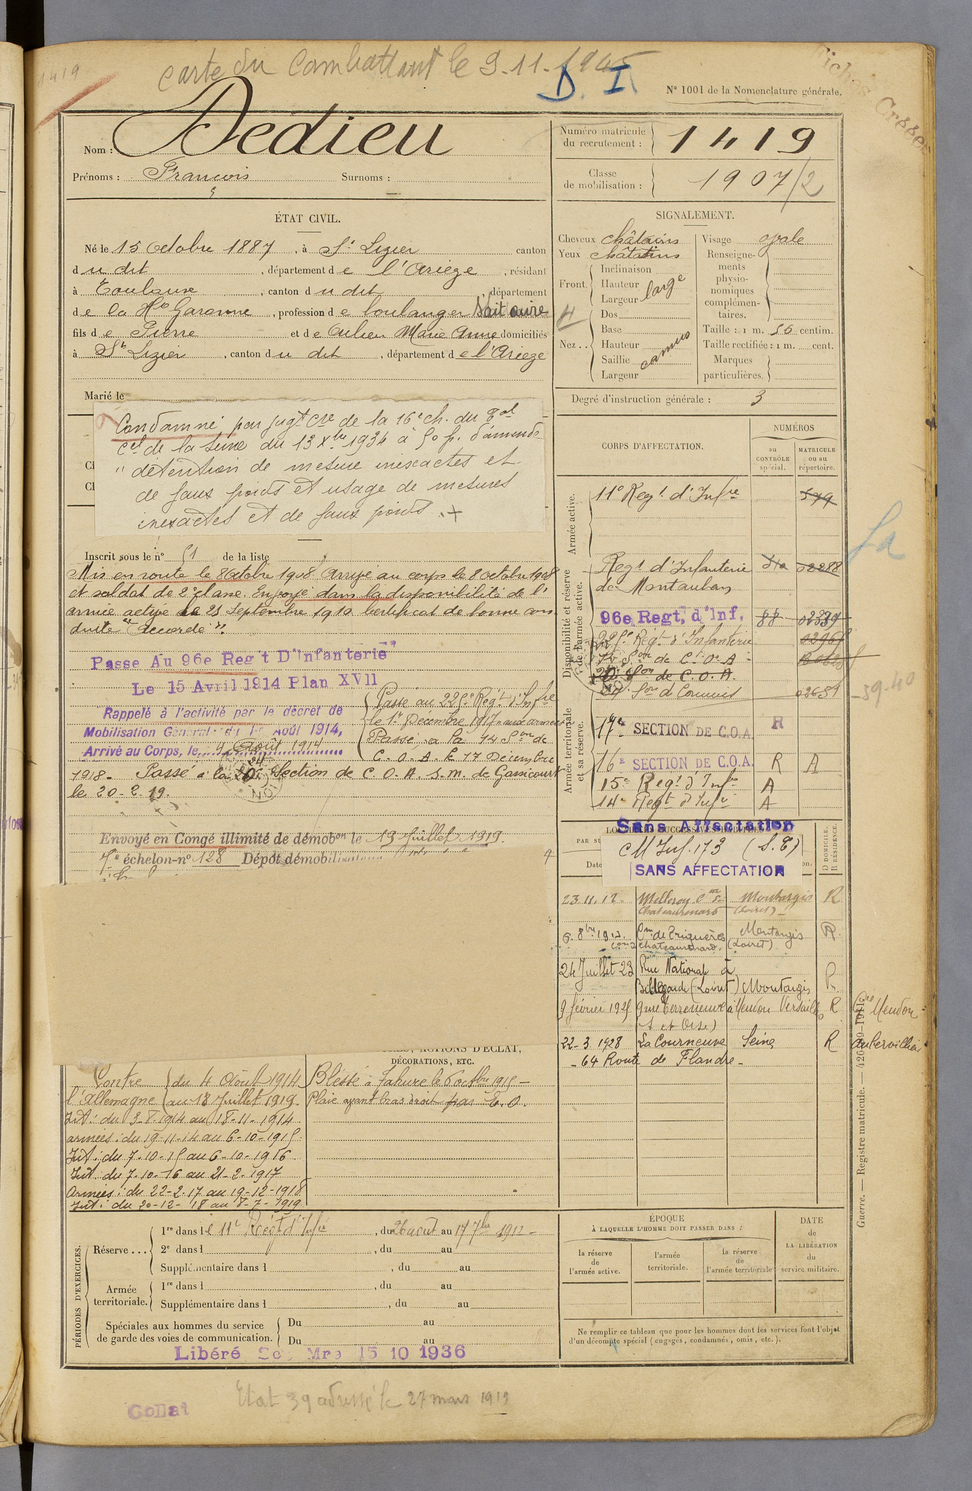 1419
Carte du Combattant le 9-11-1945
D. I
N° 1001 de la Nomenclature générale.
Nom : Dedieu
Prénoms : François
Surnoms :
Numéro matricule du recrutement : 1419
Classe de mobilisation : 1907/2
ÉTAT CIVIL.
Né le 15 Octobre 1887, à St Lizier canton
d u dit, département d e l'Ariège, résidant
à Toulouse, canton d u dit, département
d e la Hte Garonne, profession d e boulanger Sait cuire
fils d e Pierre et d e Marie Anne domiciliés
à St Lizier, canton d u dit, département d e l'Ariège
Marié le
SIGNALEMENT.
Cheveux châtains
Yeux châtains
Front. Inclinaison
Hauteur
Largeur large
Nez .. Dos
Base
Hauteur
Saillie camus
Largeur
Visage ovale
Renseignements physionomiques complémentaires.
Taille : 1 m. 56 centim.
Taille rectifiée : 1 m. cent.
Marques particulières.
Degré d'instruction générale : 3
Condamné par jugt Cre de la 16e ch. du
de la Seine du 13 Xbre 1934 à 50 f. d'amende
" détention de mesure inexactes et
de faux poids et usage de mesures
inexactes et de faux poids. +
Inscrit sous le n° 51 de la liste
Mis en route le 8 Octobre 1908 Arrivé au corps le 8 octobre 1908
et soldat de 2e classe. Envoyé dans la disponibilité de l'
armée active le 25 Septembre 1910. Certificat de bonne con
duite "accordé".
Passe Au 96e Reg't D'Infanterie
Le 15 Avril 1914 Plan XVII
Rappelé à l'activité par le décret de
Mobilisation Générale du 1er Août 1914,
Arrivé au Corps, le 9 Août 1914
Passé au 22e Régt d'Infie
le 1er Décembre 1917 aux armées
Passé à la 14 Son de
C. O. A. le 17 Décembre
1918. Passé à la 20e Section de C. O. A. s. m. de Gassicourt
le 20-2-19.
Envoyé en Congé illimité de démobon le 19 Juillet 1919.
échelon-n° 128 Dépôt démobilisateur
CORPS D'AFFECTATION.
NUMÉROS
au CONTRÔLE spécial.
MATRICULE ou au répertoire.
Armée active.
11e Regt d'Infie
Disponibilité et réserve de l'armée active.
Regt d'Infanterie
de Montauban
96e Regt, d'Inf. 88
Regt d'Infanterie
Son de C. O. A.
Son de C. O. A.
Son de Commis 02659 -39.40
Armée territoriale et sa réserve.
17e SECTION DE C.O.A. R
16e SECTION DE C.O.A. R A
15e Regt d'Infie A
14e Regt d'Infie A
Sans Affectation
SANS AFFECTATION
23.11.12. Melleroy Châteaurenard Montargis (Loiret) R
Châteaurenard Montargis (Loiret) R
24 Juillet 23 Rue National à Bellegarde (Loiret) Montargis R
9 février 1925 Meudon Versailles (S et Oise) R
22-3.1928 La Courneuve Seine R Aubervilliers
- 64 Route de Flandre -
DÉCORATIONS, ETC.
Contre l'Allemagne du 4 Août 1914 au 18 Juillet 1919.
Int : du 3-8-1914 au 18-11-1914
armées : du 19-11-14 au 6-10-1915
Int : du 7-10-15 au 6-10-1916
Int : du 7-10-16 au 21-2-1917
Armées : du 22-2-17 au 19-12-1918
Int : du 20-12-18 au 18-7-1919
Blessé à Tahure le 6 octobre 1915 -
Plaie avant bras droit par E. O.
PÉRIODES D'EXERCICES.
Réserve ... 1re dans le 11e Régt d'Infie, du 26 août au 17 7bre 1912 -
2e dans l , du au
Supplémentaire dans l , du au
Armée territoriale. 1re dans l , du au
Supplémentaire dans l , du au
Spéciales aux hommes du service de garde des voies de communication. Du au
Du au
Libéré Ser Mre 15 10 1936
ÉPOQUE
À LAQUELLE L'HOMME DOIT PASSER DANS :
la réserve de l'armée active.
l'armée territoriale.
la réserve de l'armée territoriale.
DATE de LA LIBÉRATION du service militaire.
Ne remplir ce tableau que pour les hommes dont les services font l'objet
d'un décompte spécial (engagés, condamnés, omis, etc.).
Guerre. — Registre matricule.
Etat 39 adressé le 27 mars 1913